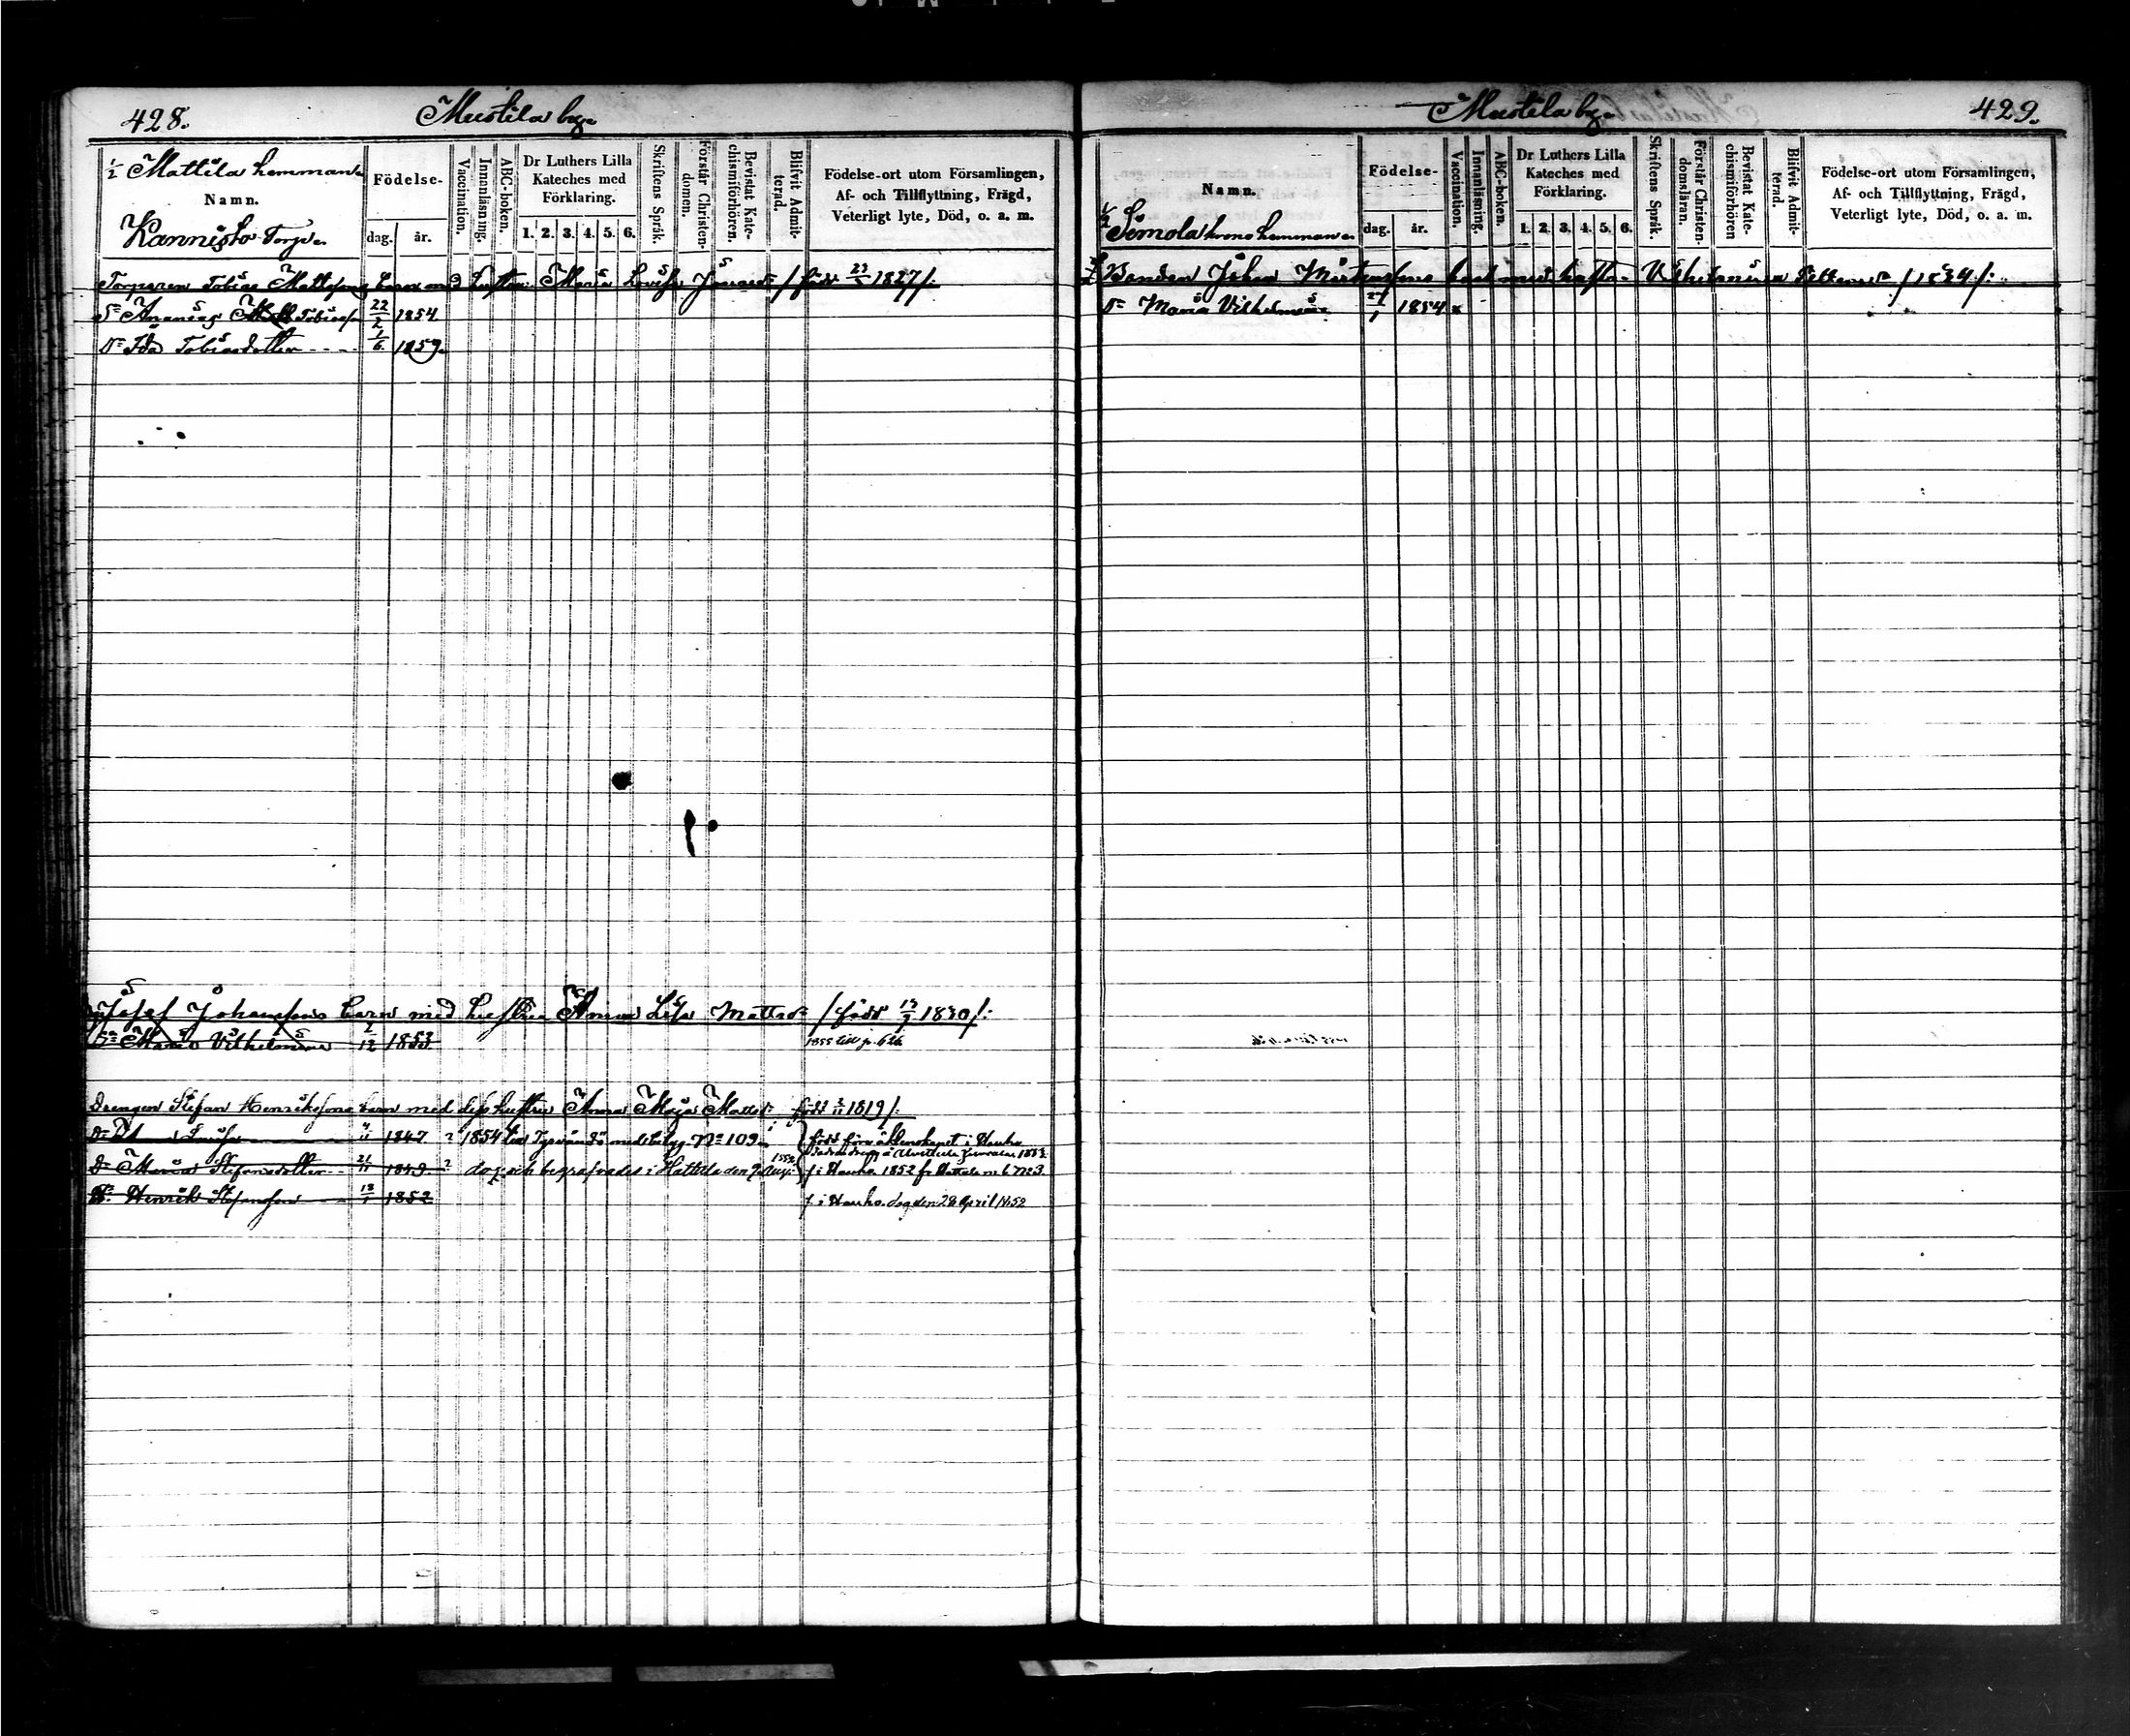 428. Mustila by.
1/2 Mattila hemman.
Namn.
Kannisto Torp.
Födelse-
dag. år.
Vaccination.
Innanläsning.
ABC-boken.
Dr Luthers Lilla
Kateches med
Förklaring.
1. 2. 3. 4. 5. 6.
Skriftens Språk.
Förstår Christen-
domen.
Bevistat Kate-
chismiförhören.
Blifvit Admit-
terad.
Födelse-ort utom Församlingen,
Af- och Tillflyttning, Frägd,
Veterligt lyte, Död, o. a. m.
Torparen Tobias Mattssons barn med hustru Maria Lovisa Jonasd: / född 23/5 1827/:
Sn Ananias Tobiasson 22/2 1854
Dr Ida Tobiasdotter 1/6 1859.
Josef Johanssons barn med hustru Anna Lisa Mattsdr /född 13/7 1830/:
Dr Maria Vilhelmina 2/12 1853 1855 till p.
Drengen Stefan Henrikssons barn med dess hustru Anna Maja Mattsd: född 3/11 1819/:
Dr Lovisa 4/11 1847 ? 1854 till med betyg No 109 född före äktenskapet i Hauho
Dr Maria Stefansdotter 21/11 1849 ? dog och begrafvades i Hattula den 9 Aug: f. i Hauho. 1852 fr Hattula m. b. No 3.
Sn Henrik Stefansson 13/1 1852 f. i Hauho. dog den 28 April 1852
Mustila by. 429.
Namn.
1/2 Simola krono hemman.
Födelse-
dag. år.
Vaccination.
Innanläsning.
ABC-boken.
Dr Luthers Lilla
Kateches med
Förklaring.
1. 2. 3. 4. 5. 6.
Skriftens Språk.
Förstår Christen-
domsläran.
Bevistat Kate-
chismiförhören
Blifvit Admit-
terad.
Födelse-ort utom Församlingen,
Af- och Tillflyttning, Frägd,
Veterligt lyte, Död, o. a. m.
Bonden Johan Mårtenssons barn med hustru Vilhelmina /1834/:
Dr Maria Vilhelmina 1854 x